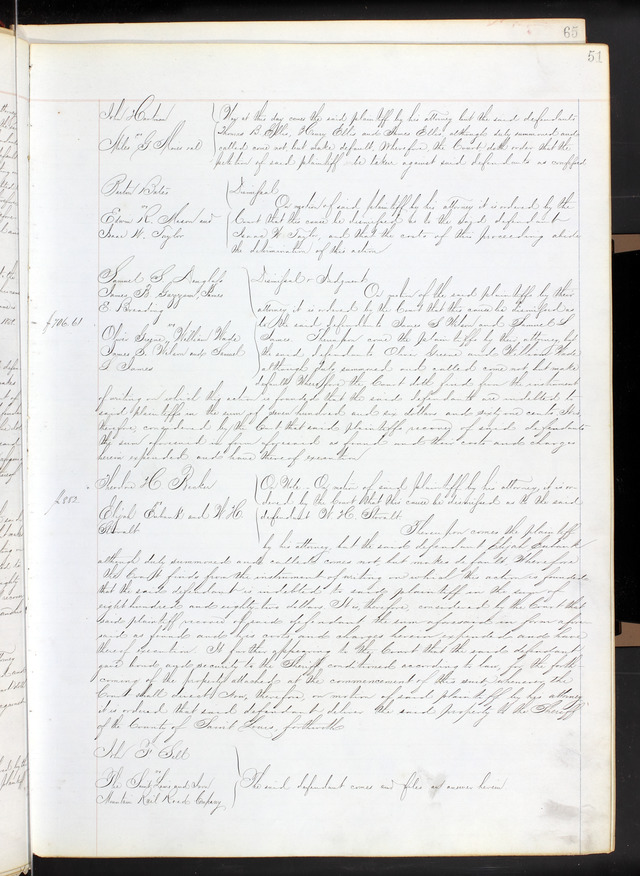 65
51
John
Now at this day comes the said plaintiff by his attorney but the said defendants
vs
Thomas B. Ellis, Henry Ellis and James Ellis although duly summoned and
Miles G.
called come not but make default. Wherefore, the Court doth order that the
petition of said plaintiff be taken against said defendants as confessed
Dismissal
On motion of said plaintiff by his attorney it is ordered by the
vs
Edwin R. Mason and
Court that this cause be dismissed as to the said defendant
Isaac W. Taylor
Isaac W. Taylor, and that the costs of this proceeding abide
the determination of this action
Samuel S.
Dismissal & Judgment
James B. James
On motion of the said plaintiffs by their
E Breading
attorney it is ordered by the Court that this cause be dismissed as
$706.61
vs
to the said defendants James S. and Samuel T.
Oliver Greene, William Wade
James. Thereupon come the plaintiffs by their attorney but
James S. and Samuel
the said defendants Oliver Greene and William Wade
T. James
although duly summoned and called come not but make
default. Wherefore the Court doth find from the instrument
of writing on which this action is founded that the said defendants are indebted to
said plaintiffs in the sum of seven hundred and six dollars and sixty one cents. It is
therefore, considered by the Court that said plaintiffs recover of said defendants
the sum aforesaid in form aforesaid as found and their costs and charges
herein expended and have thereof execution
Theodore H.
On Note. On motion of said plaintiff by his attorney, it is or
$882.
vs
dered by the Court that this cause be dismissed as to the said
Elijah Eubank and W. H.
defendant W. H. Stewalt
Stewalt
Thereupon comes the plaintiff
by his attorney, but the said defendant Elijah Eubank
although duly summoned and called comes not but makes default. Wherefore
the Court finds from the instrument of writing on which this action is founded
that the said defendant is indebted to said plaintiff in the sum of
eight hundred and eighty two dollars. It is, therefore, considered by the Court that
said plaintiff recover of said defendant the sum aforesaid in form afore
said as found and his costs and charges herein expended and have
thereof execution. It further appearing to the Court that the said defendant
gave bond and security to the Sheriff, conditioned according to law, for the forth
coming of the property attached at the commencement of this suit, whenever the
Court shall direct, Now, therefore, on motion of said plaintiff by his attorney
it is ordered that said defendant deliver the said property to the Sheriff
of the County of Saint Louis, forthwith
John F.
vs
The Saint Louis and Iron
The said defendant comes and files an answer herein
Mountain Rail Road Company